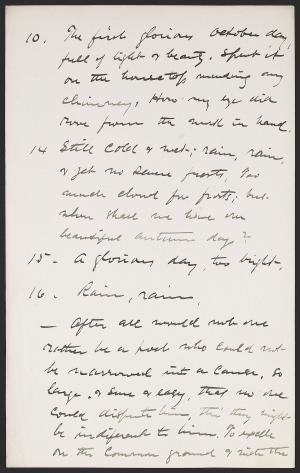 10. The first glorious October day,
full of light & beauty. Spent it
on the housetop mending my
chimney, How my eye did
rove from the work in hand.
14 Still cold & wet; rain, rain,
& yet no severe frosts, too
much cloud for frosts; but
when shall we have our
beautiful autumn days?
15 - A glorious day, too bright.
16. Rain, rain,
— After all would not one
rather be a poet who could not
be narrowed into a career, so
large, & sure & easy, that no one
could dispute him, tho' they might
be indifferent to him. To excell
on the common ground & with the